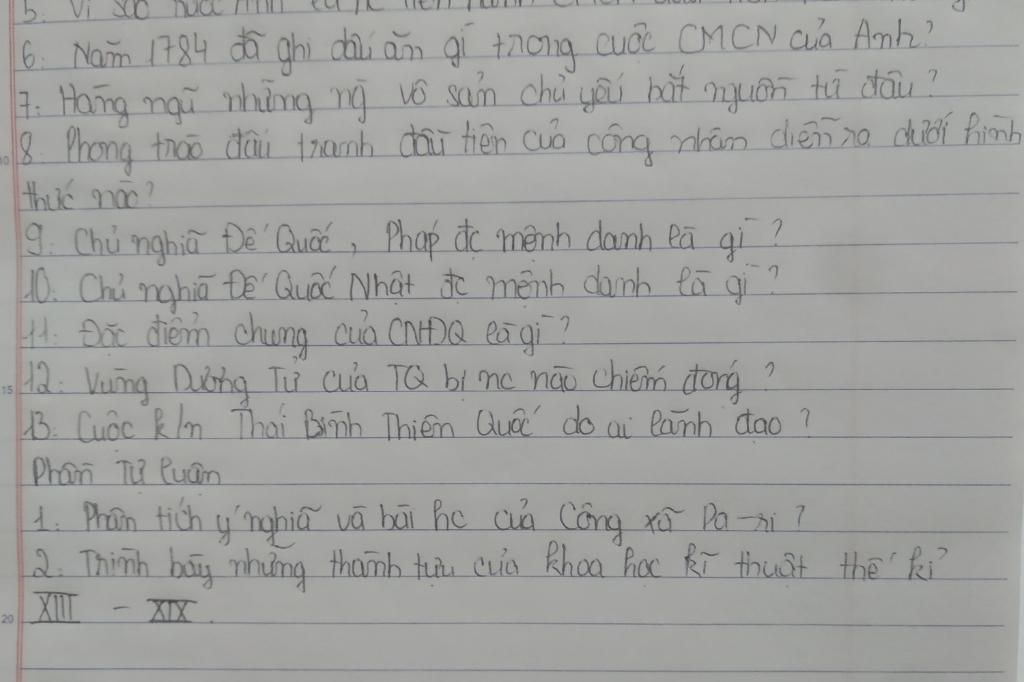 5. Vì sao nước
6. Năm 1784 đã ghi dấu ấn gì trong cuộc CMCN của Anh?
7. Hàng ngũ những ng vô sản chủ yếu bắt nguồn từ đâu?
8. Phong trào đấu tranh đầu tiên của công nhân diễn ra dưới hình
thức nào?
9. Chủ nghĩa Đế Quốc, Pháp đc mệnh danh là gì?
10. Chủ nghĩa Đế Quốc Nhật đc mệnh danh là gì?
11. Đặc điểm chung của CNĐQ là gì?
12. Vùng Dương Tử của TQ bị nc nào chiếm đóng?
13. Cuộc k/n Thái Bình Thiên Quốc do ai lãnh đạo?
Phần Tự luận
1. Phân tích ý nghĩa và bài hc của Công xã Pa-ri?
2. Trình bày những thành tựu của khoa học kĩ thuật thế kỉ
XIII - XIX.